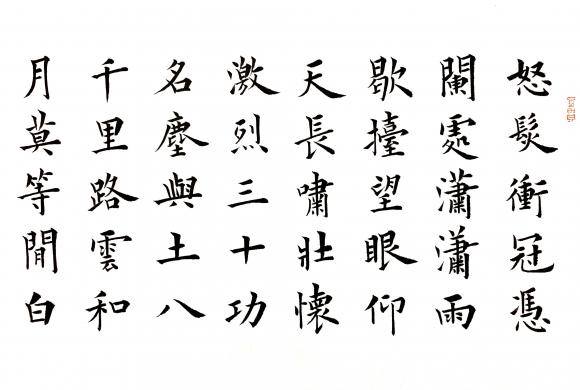 怒髮衝冠憑
闌處瀟瀟雨
歇擡望眼仰
天長嘯壯懷
激烈三十功
名塵與土八
千里路雲和
月莫等閒白